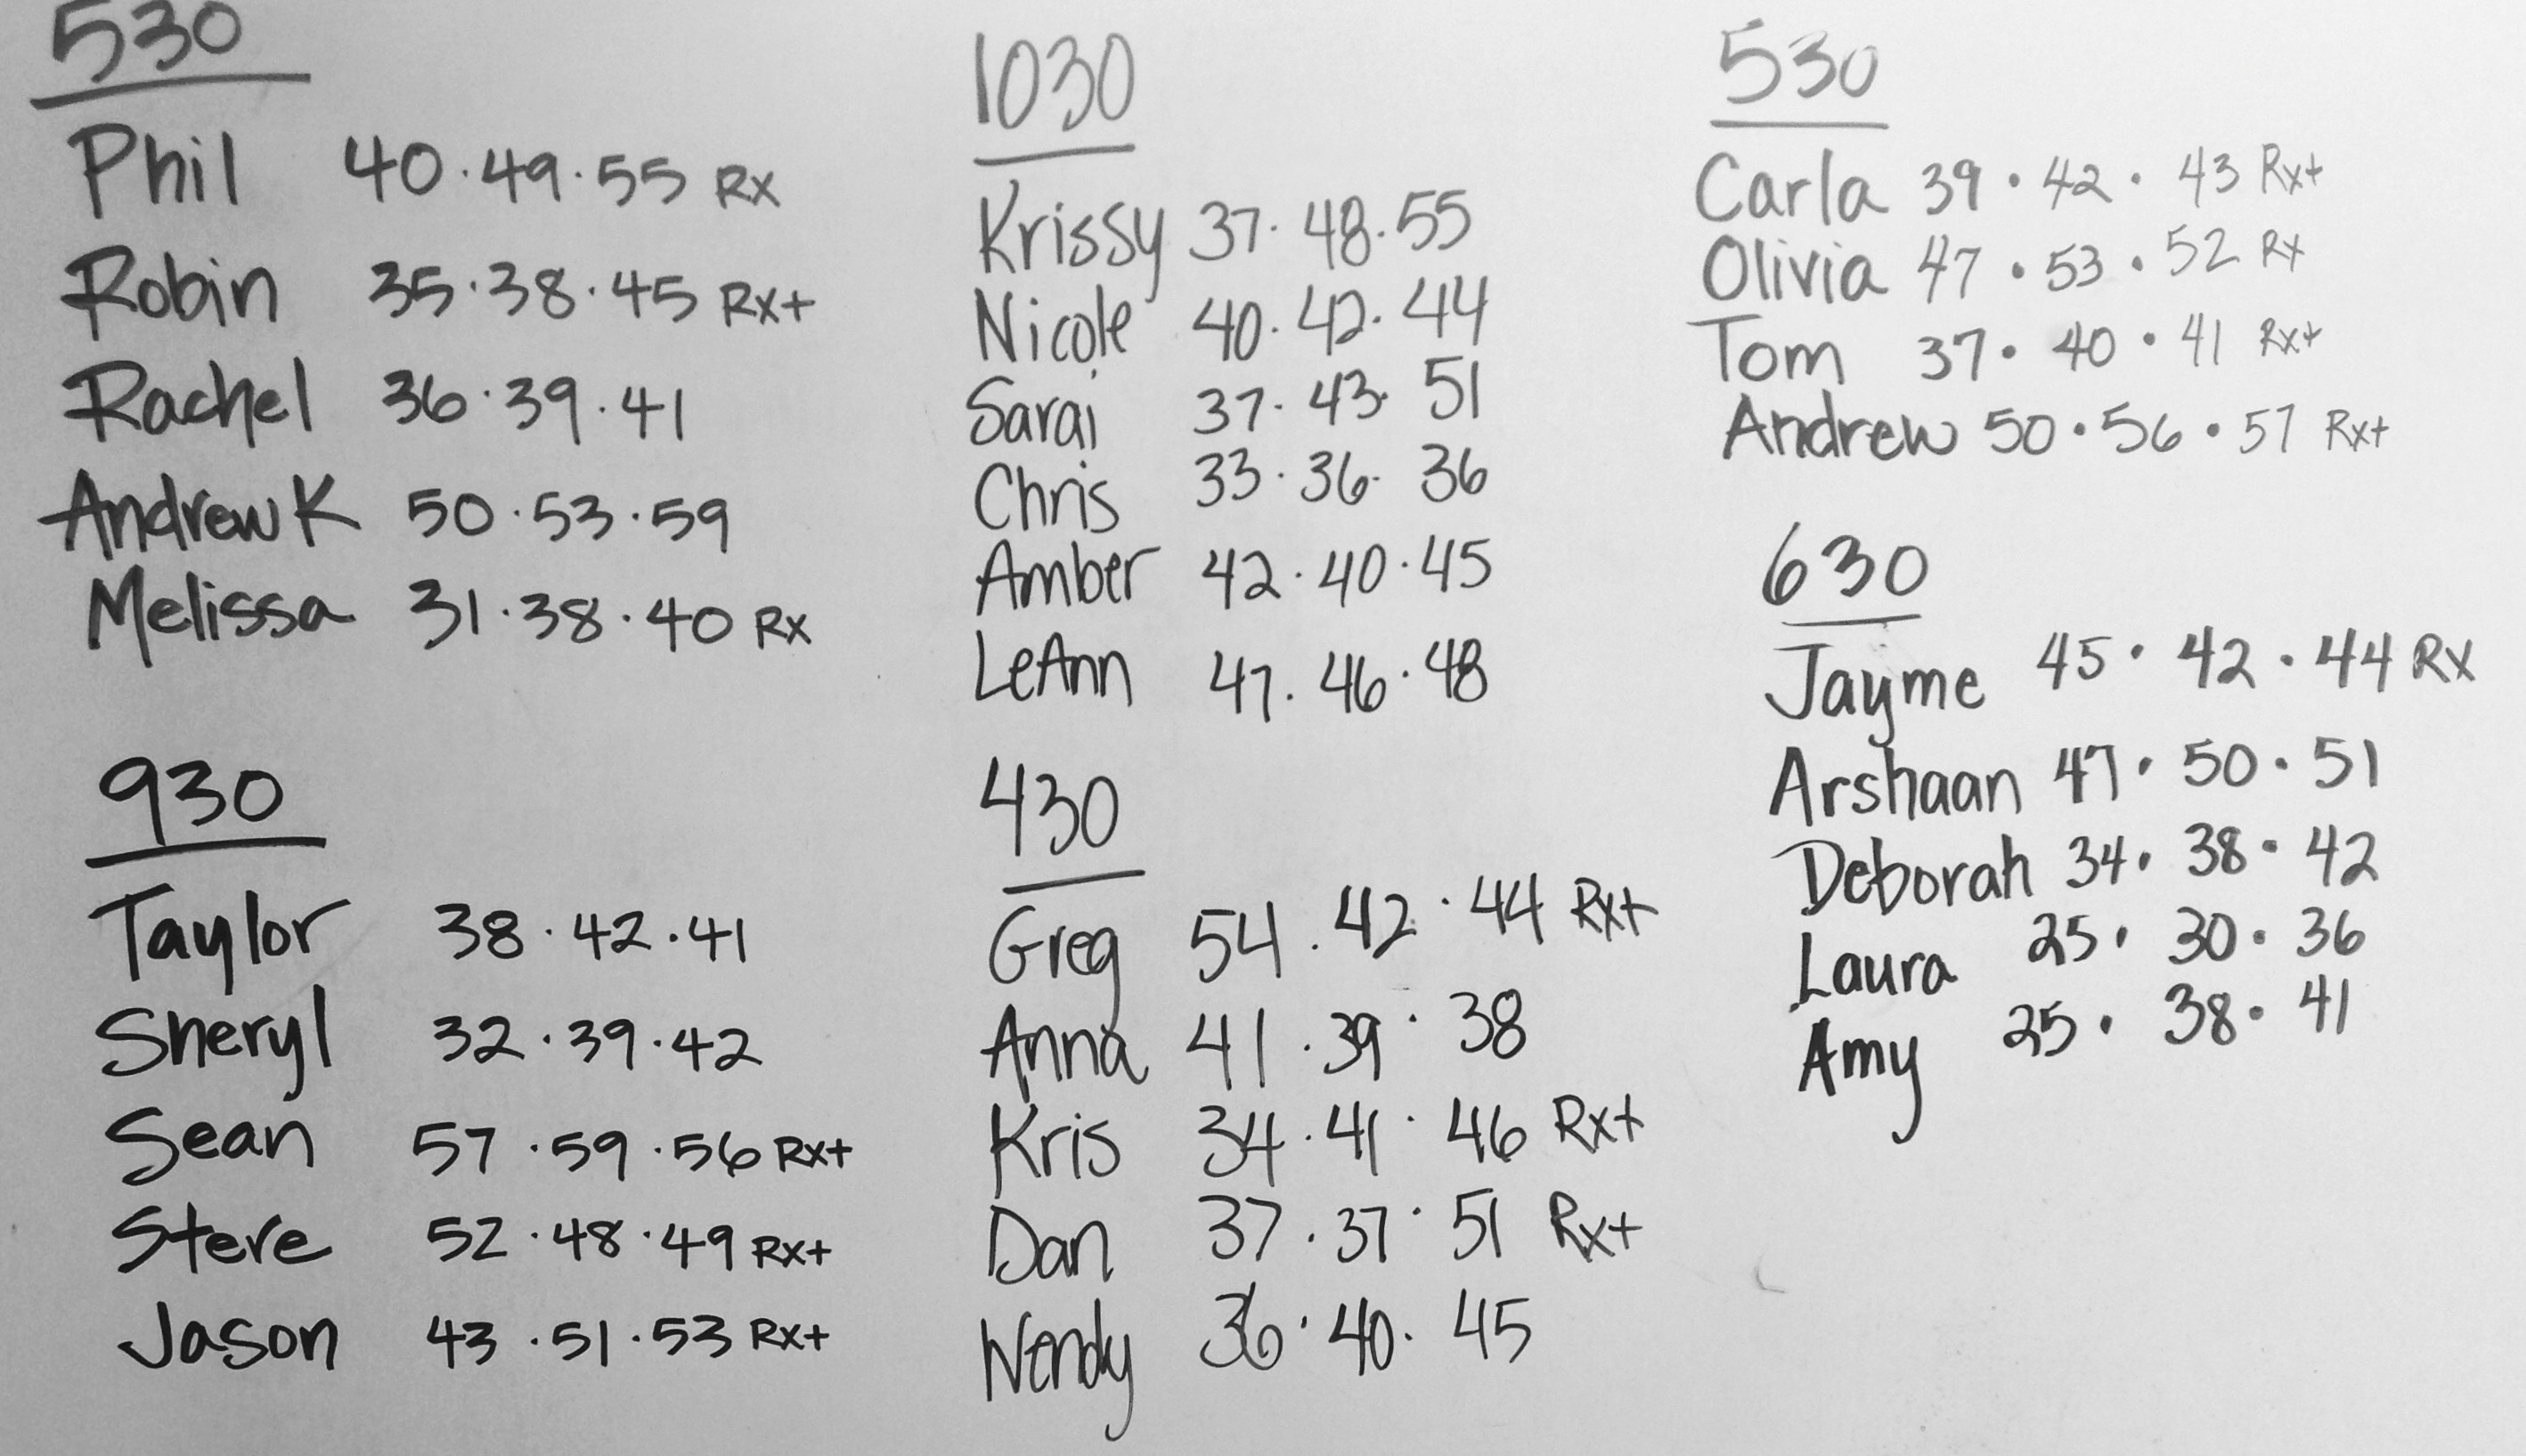 530
Phil 40 · 49 · 55 Rx
Robin 35 · 38 · 45 Rx+
Rachel 36 · 39 · 41
Andrew K 50 · 53 · 59
Melissa 31 · 38 · 40 Rx
930
Taylor 38 · 42 · 41
Sheryl 32 · 39 · 42
Sean 57 · 59 · 56 Rx+
Steve 52 · 48 · 49 Rx+
Jason 43 · 51 · 53 Rx+
1030
Krissy 37 · 48 · 55
Nicole 40 · 42 · 44
Sarai 37 · 43 · 51
Chris 33 · 36 · 36
Amber 42 · 40 · 45
LeAnn 47 · 46 · 48
430
Greg 54 · 42 · 44 Rx+
Anna 41 · 39 · 38
Kris 34 · 41 · 46 Rx+
Dan 37 · 37 · 51 Rx+
Wendy 36 · 40 · 45
530
Carla 39 · 42 · 43 Rx+
Olivia 47 · 53 · 52 Rx
Tom 37 · 40 · 41 Rx+
Andrew 50 · 56 · 57 Rx+
630
Jayme 45 · 42 · 44 Rx
Arshaan 47 · 50 · 51
Deborah 34 · 38 · 42
Laura 25 · 30 · 36
Amy 25 · 38 · 41